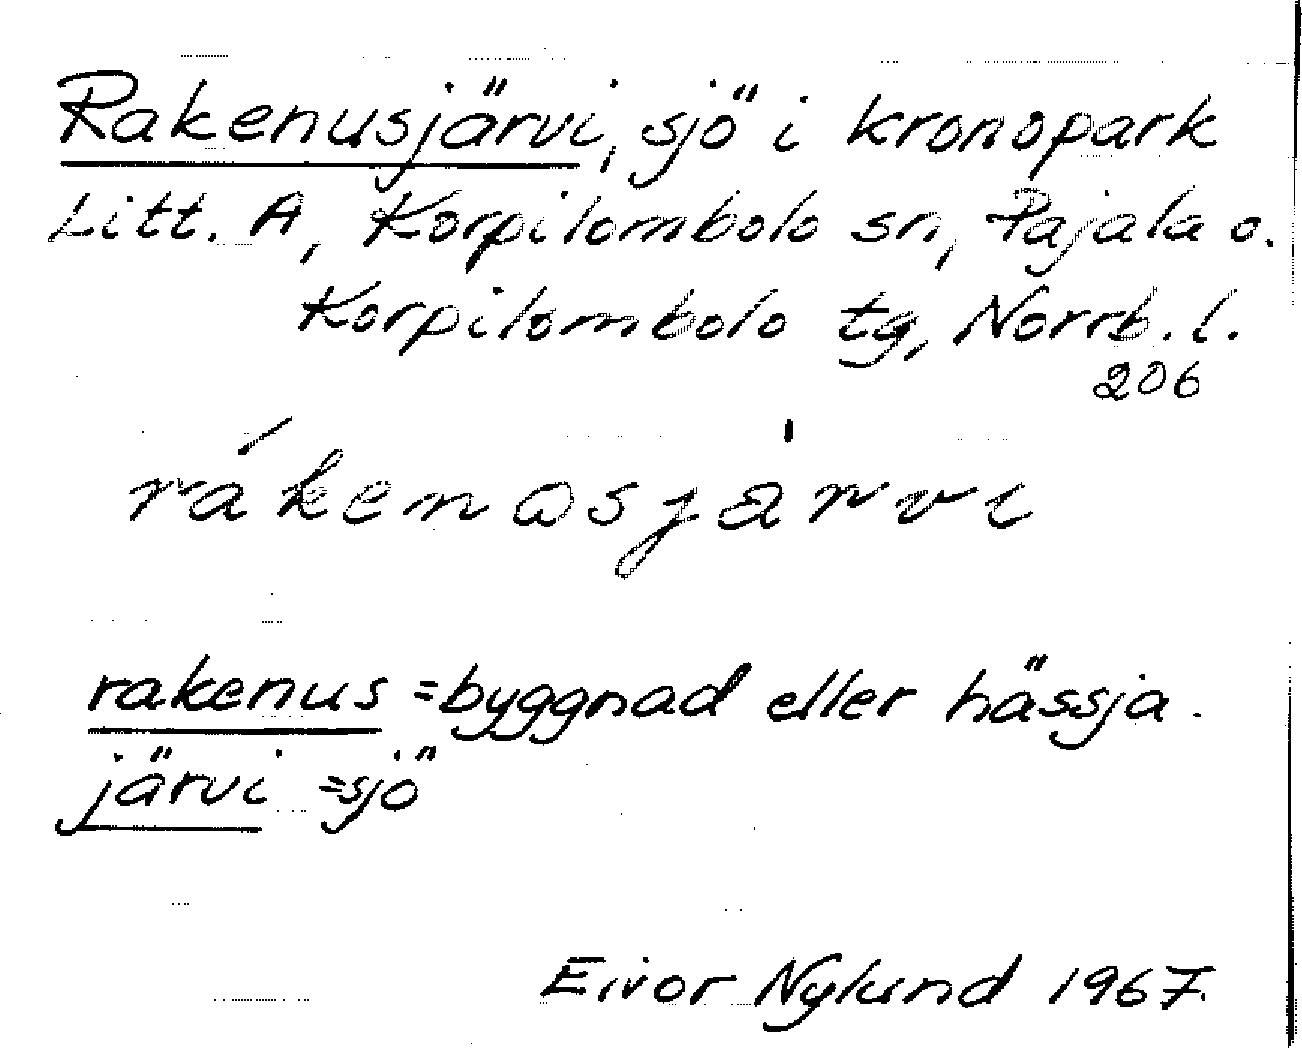 Rakenusjärvi, sjö i kronopark
Litt. A, Korpilombolo sn, Pajala o.
Korpilombolo tg, Norrb. l.
206
rákenɷsjàrvi
rakenus = byggnad eller hässja.
järvi = sjö
Eivor Nylund 1967.